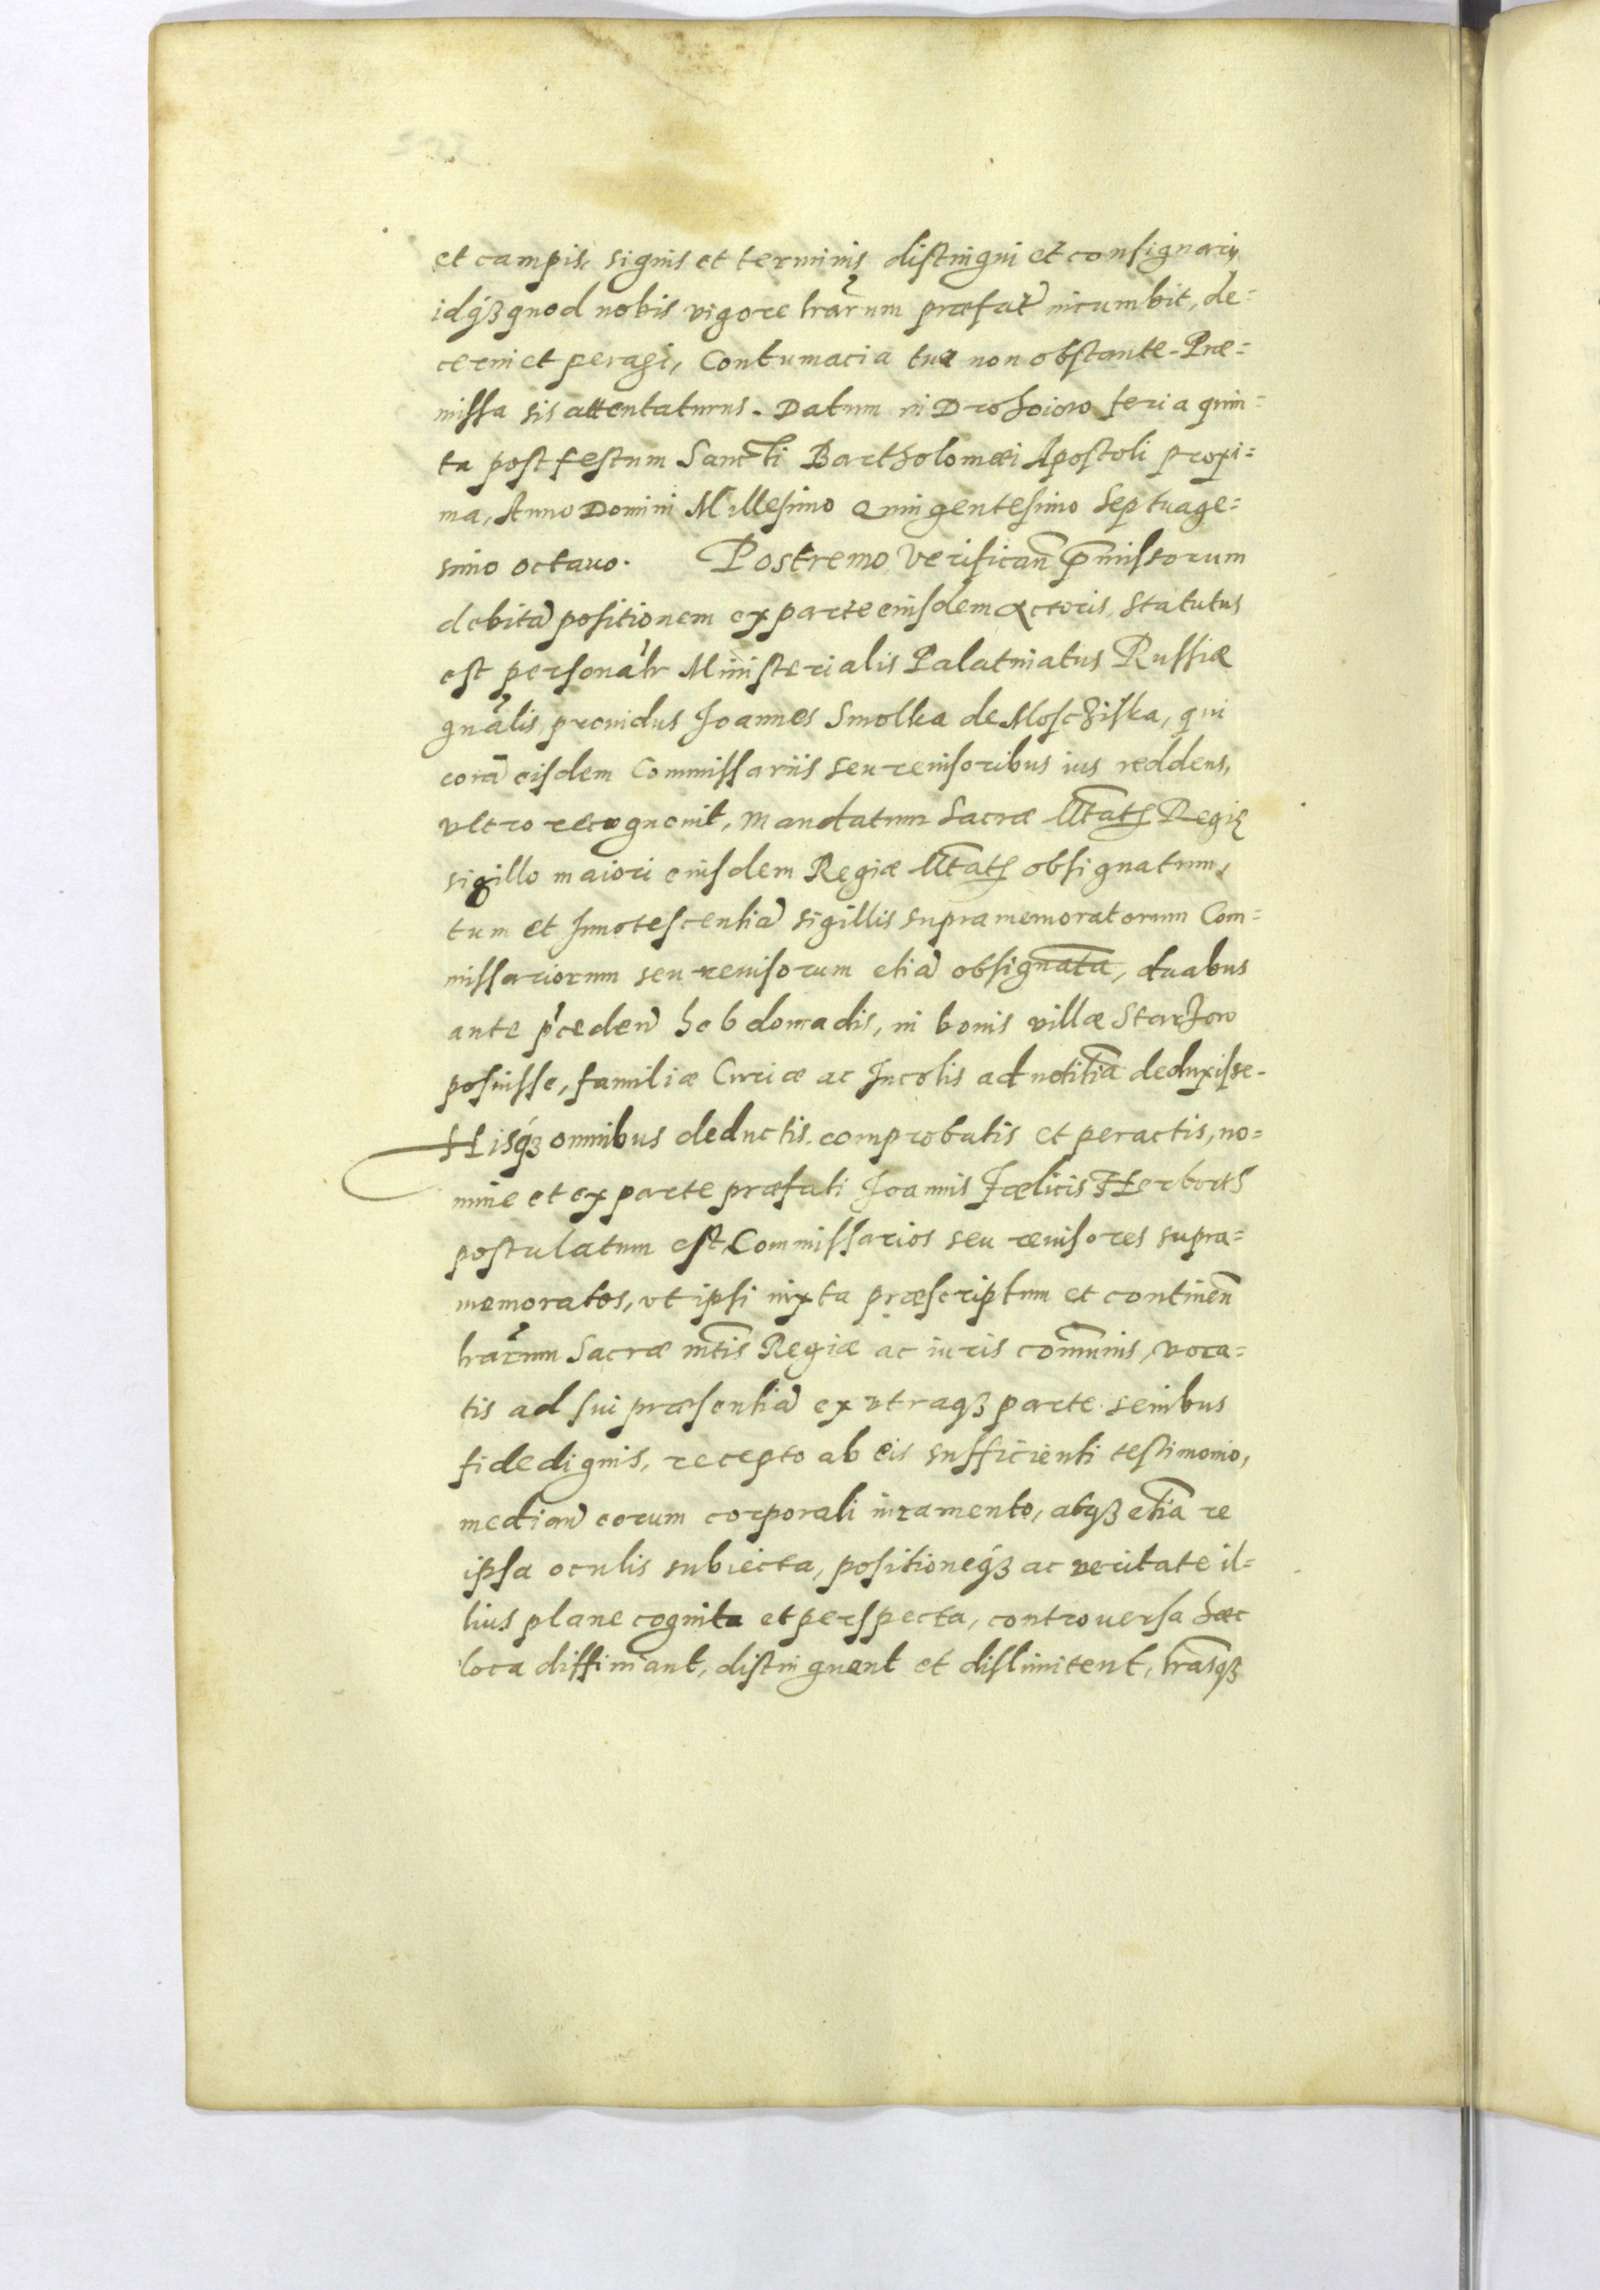 et campis, signis et terminis distingui et consignari,
idq́ȝ quod nobis vigore lrãrum præfat̃ incumbit, de=
cerni et peragi, Contumacia tua non obstante. Præ=
missa sis attentaturus. Datum in Drohoiow feria quin=
ta post festum Sancti Bartholomæi Apostoli proxi=
ma, Anno Domini Millesimo Quingentesimo Septuage=
simo octauo. Postremo verifican̄ p̄missorum
debitã positionem ex parte eiusdem Actoris, statutus
est personalr̃ Ministerialis Palatinatus Russiæ
gnãlis prouidus Joannes Smolka de Mosczĩska, qui
corã eisdem Commissariis seu reuisoribus ius reddens,
vltro recognouit, mandatum Sacræ Mtatis Regię
sigillo maiori eiusdem Regiæ Mtatis obsignatum,
tum et Innotescentiã sigillis supramemoratorum Com=
missariorum seu reuisorum etiã obsignata, duabus
ante p̃ceden̄ hebdomadis, in bonis villæ Starzow
posuisse, familiæ Curiæ ac Incolis ad notitiã deduxisse.
Hisq́ȝ omnibus deductis, comprobatis et peractis, no=
mine et ex parte præfati Joannis Fœlicis Herborth
postulatum est, Commissarios seu reuisores supra=
memoratos, vt ipsi iuxta præscriptum et continen̄
lrãrum Sacræ mtis Regiæ ac iuris com̄unis, voca=
tis ad sui præsentiã ex vtraqȝ parte senibus
fide dignis, recepto ab eis sufficienti testimonio,
median̄ eorum corporali iuramento, atqȝ etiã re
ipsa oculis subiecta, positioneq́ȝ ac veritate il=
lius plane cognita et perspecta, controuersa hæc
loca diffiniant, distinguant et dislimitent, lrãsqȝ